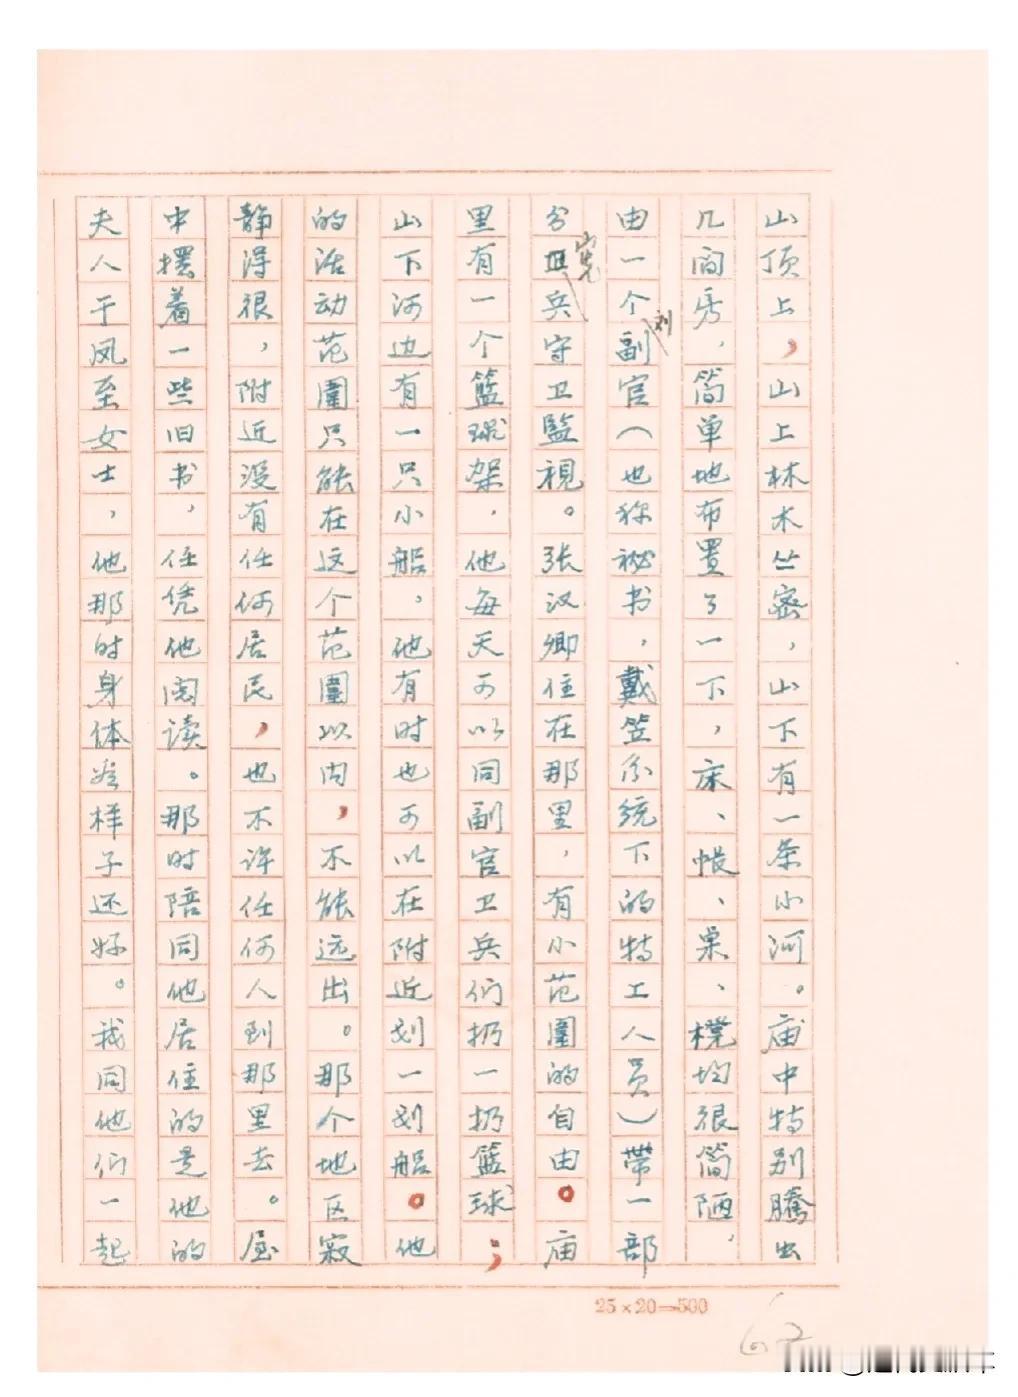 山顶上,山上林木丛密,山下有一条小河。庙中特别腾出
几间房,简单地布置了一下,床、帐、桌、櫈均很简陋,
由一个刘副官(也称秘书,戴笠系统下的特工人员)带一部
分宪兵守卫監視。张汉卿住在那里,有小范圍的自由。庙
里有一个篮球架,他每天可以同副官卫兵们扔一扔篮球;
山下河边有一只小船,他有时也可以在附近划一划船。他
的活动范圍只能在这个范圍以内,不能远出。那个地区寂
静得很,附近没有任何居民,也不许任何人到那里去。屋
中摆着一些旧书,任凭他阅读。那时陪同他居住的是他的
夫人于凤至女士,他那时身体样子还好。我同他们一起
25×20=500